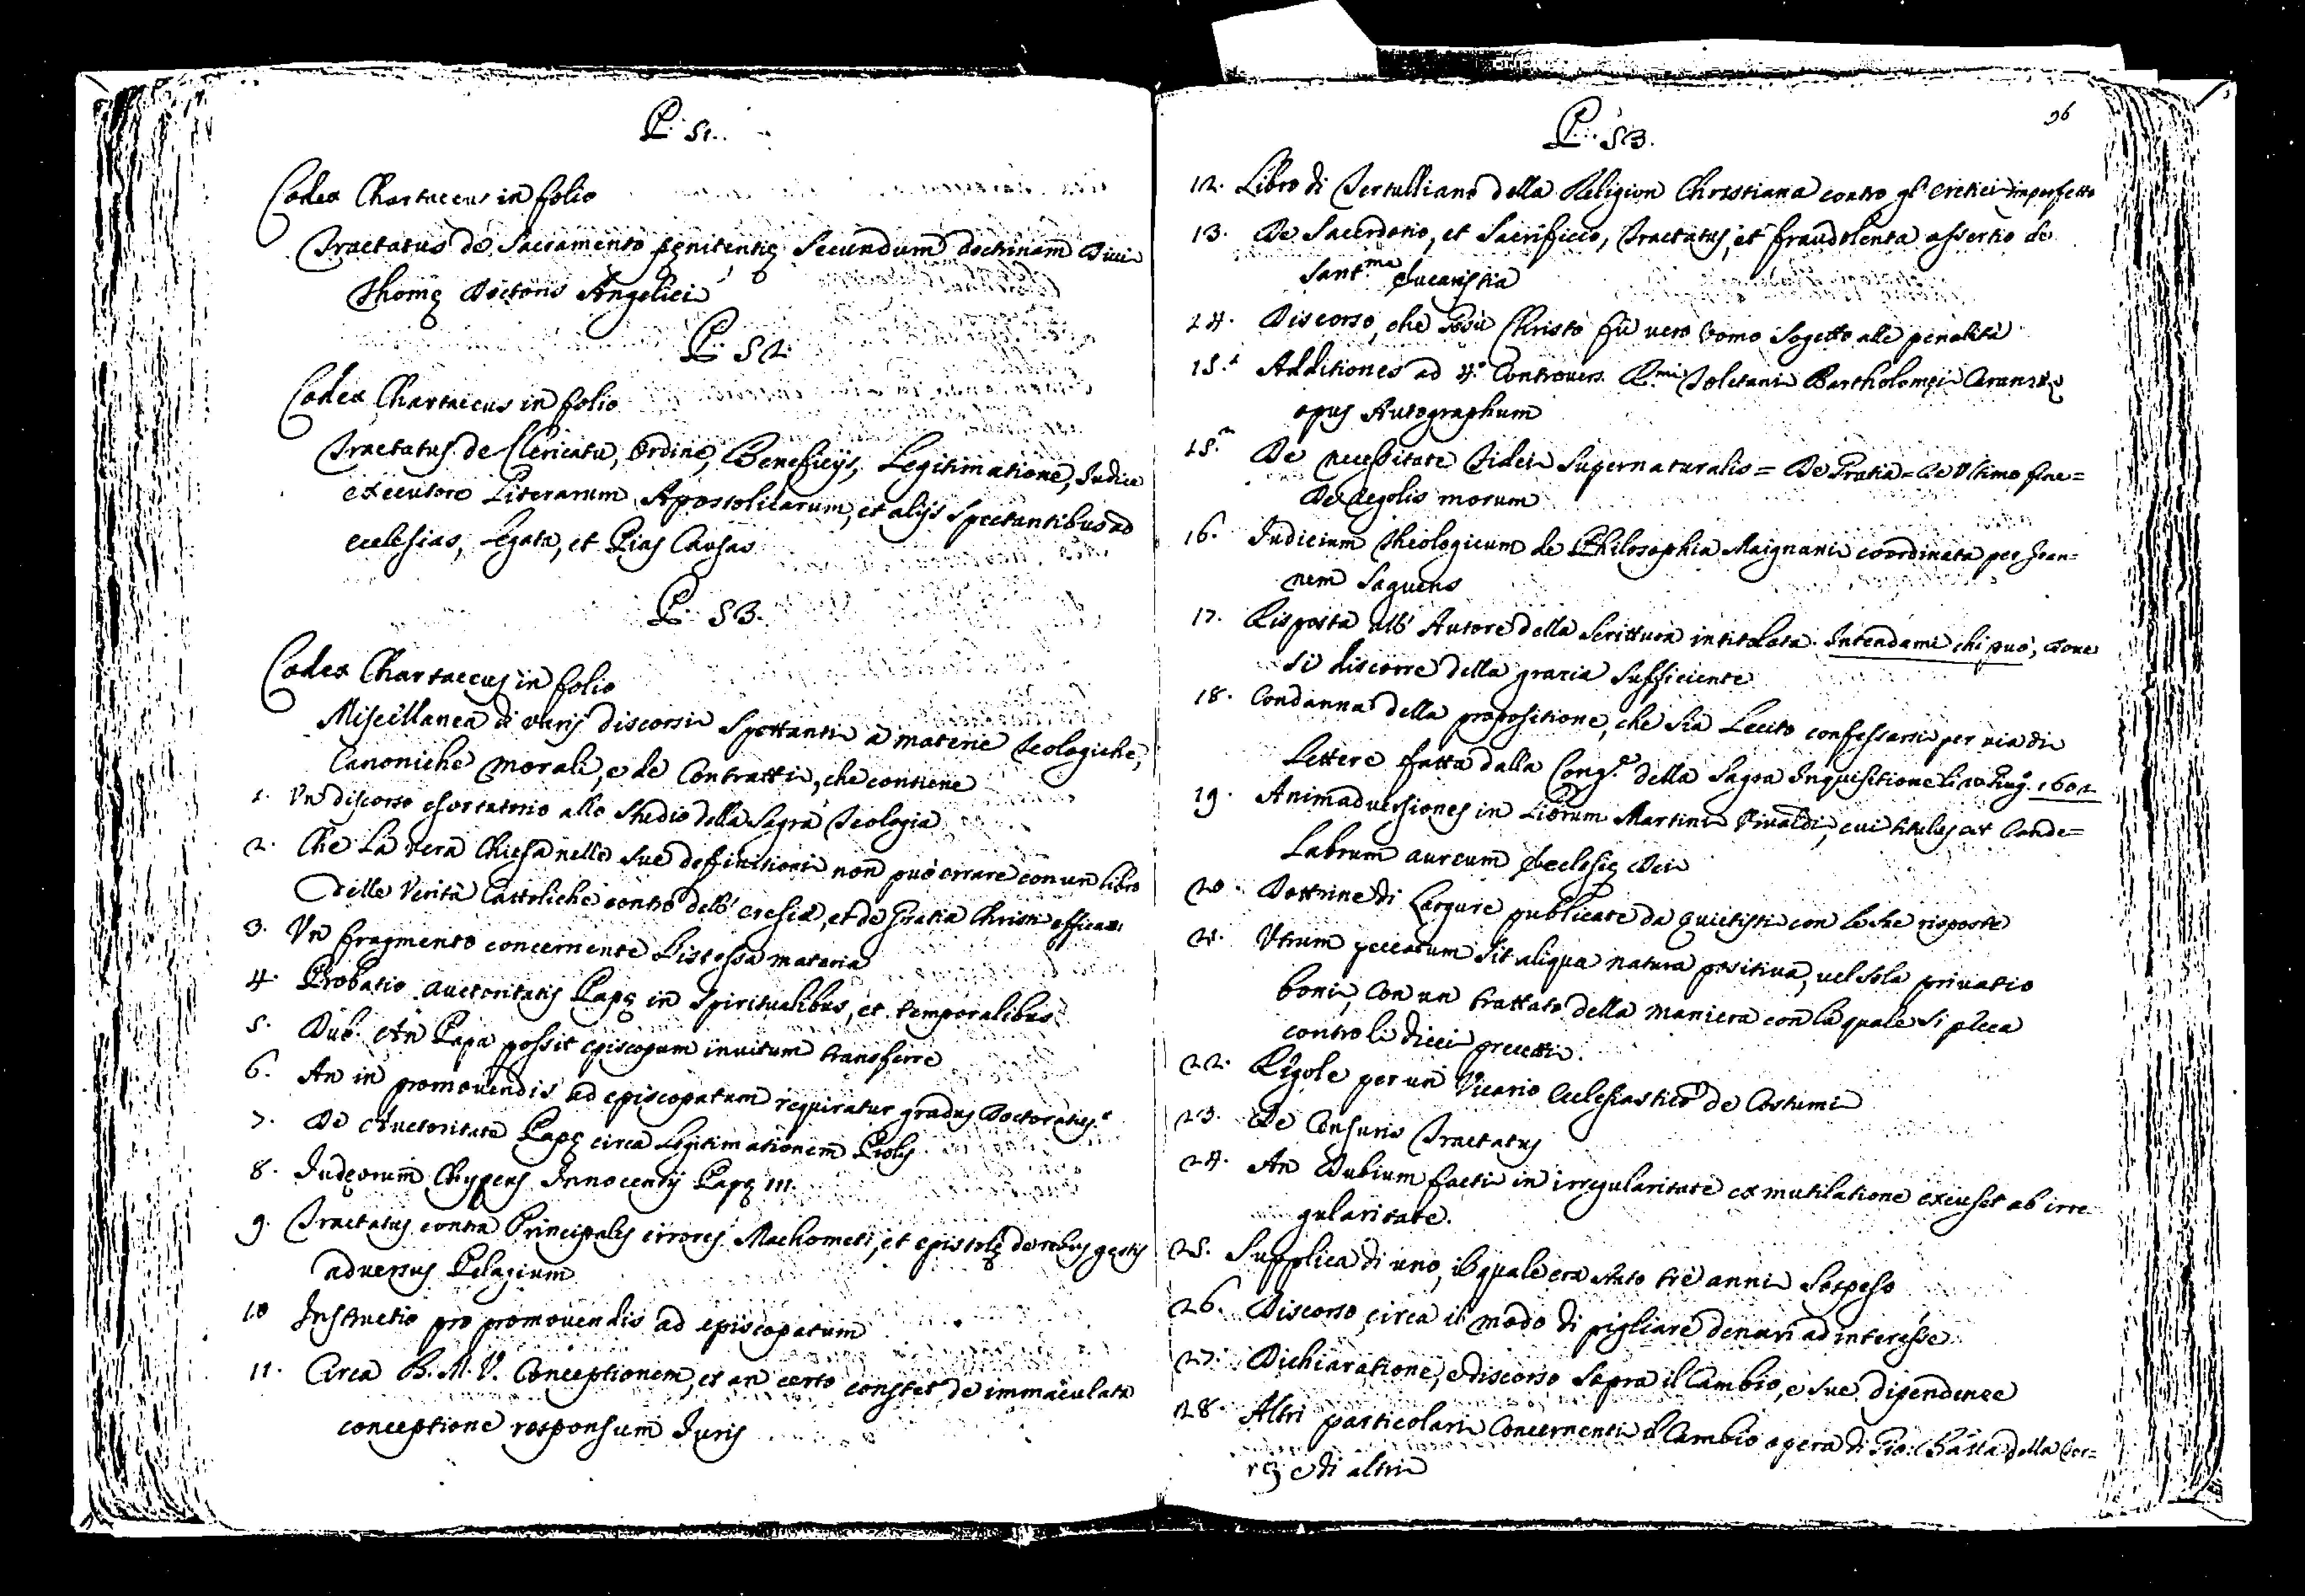 P. 51.
Codex Chartaceus in folio
Tractatus de Sacramento pęnitentię Secundum doctrinam Divi
Thomę Doctoris Angelici
P. 52.
Codex Chartaceus in folio
Tractatus de Clericatu, Ordine, Beneficijs, Legitimatione, Judice
executore Literarum Apostolicarum, et alijs Spectantibus ad
ecclesias, Legata, et Pias Causas
P. 53.
Codex Chartaceus in folio
Miscellanea di varij discorsi Spettanti a materie Teologiche,
Canoniche Morali, e de Contratti, che contiene
1. Un discorso esortatorio allo Studio della Sagra Teologia
2. Che La vera Chiesa nelle sue deffinitioni non può errare con un libro
delle Verità Cattoliche contro dell' eresia, et de Gratia Christi efficaci
3. Un fragmento concernente l'istessa materia
4. Probatio auctoritatis Papę in Spiritualibus, et temporalibus
5. Dub. An Papa possit episcopum invitum transferre
6. An in promovendis ad episcopatum requiratur gradus Doctoratus
7. De Auctoritate Papę circa Legitimationem Prolis
8. Judęorum Clypeus Innocentij Papę III.
9. Tractatus contra Principales errores Machometi, et epistolę de rebus gestis
adversus Pelagium
10 Instructio pro promovendis ad episcopatum
11. Circa B. M. V. Conceptionem, et an certo constet de immaculata
conceptione responsum Juris
96
P. 53.
12. Libro di Tertulliano della Religion Christiana contro gl' eretici imperfetto
13. De Sacerdotio, et Sacrificio, Tractatus, et fraudolenta assertio de
Sant.ma Eucaristia
14. Discorso, che Giesù Christo fù vero Uomo Sogetto alle penalità
15. Additiones ad 4.° Controvers. R.mi Toletani Bartholomęi Caranzę
opus Autographum
15. De necessitate Fidei Supernaturalis = De Gratia = de Ultimo fine =
De Regolis morum
16. Judicium Theologicum de Philosophia Maignani coordinata per Joan=
nem Saguens
17. Risposta all' Autore della Scrittura intitolata Intendami chi può, dove
Si discorre della grazia Sufficiente
18. Condanna della propositione, che Sia Lecito confessarsi per via di
Lettere fatta dalla Cong.e della Sagra Inquisitione li 20 Lug. 1602
19. Animadversiones in Librum Martini Vivaldi, cui titulus est Cande=
Labrum aureum Ecclesię Dei
20. Dottrine di publicate da quietisti con le sue risposte
21. Utrum peccatum sit aliqua natura positiva, vel sola privatio
boni, Con un trattato della Maniera con la quale si pecca
contro li dieci precetti.
22. Regole per un Vicario ecclesiastico de Costumi
23. De Censuris Tractatus
24. An Dubium facti in irregularitate ex mutilatione excuset ab irre
gularitate.
25. Supplica di uno, il quale era stato trè anni Sospeso
26. Discorso circa il modo di pigliare denari ad interesse
27. Dichiaratione, e discorso Sopra il Cambio, e sue dipendenze
28. Altri particolari Concernenti il Cambio opera di Gio: Batta della
e di altri